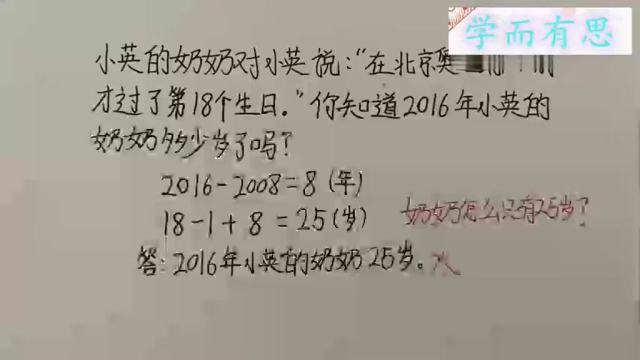 学而有思
小英的奶奶对小英说:“在北京奥
才过了第18个生日。”你知道2016年小英的
奶奶多少岁了吗?
2016-2008=8(年)
18-1+8=25(岁)
奶奶怎么只有25岁?
答:2016年小英的奶奶25岁。